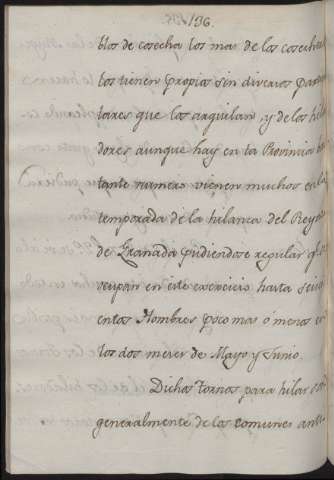 196.
blos de cosecha los mas de los cosecheros
los tienen propios sin diversos par
tares que los arquilan, y de los hila
dores aunque hay en la Provincia bas
tante numero vienen muchos en la
temporada de la hilanca del Reyno
de Granada pudiendose regular q.e se
ocupan en este exercicio hasta seisci
entos Hombres poco mas ó menos en
los dos meses de Mayo y Junio.
Dichos tornos para hilar son
generalmente de los comunes anti